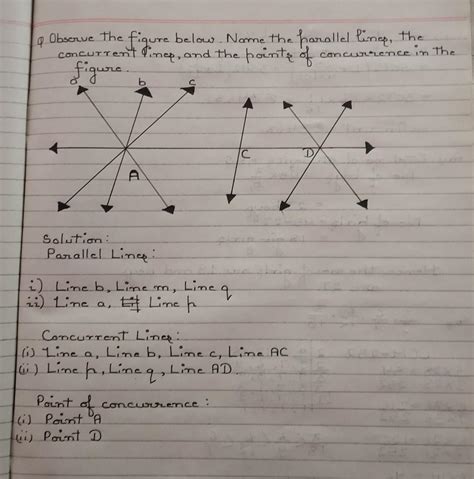 Q Observe the figure below. Name the parallel lines, the
concurrent lines, and the points of concurrence in the
figure.
a b c
A C D
Solution:
Parallel Lines:
i) Line b, Line m, Line q
ii) Line a, Line p
Concurrent Lines:
(i) Line a, Line b, Line c, Line AC
(ii) Line p, Line q, Line AD.
Point of concurrence:
(i) Point A
(ii) Point D